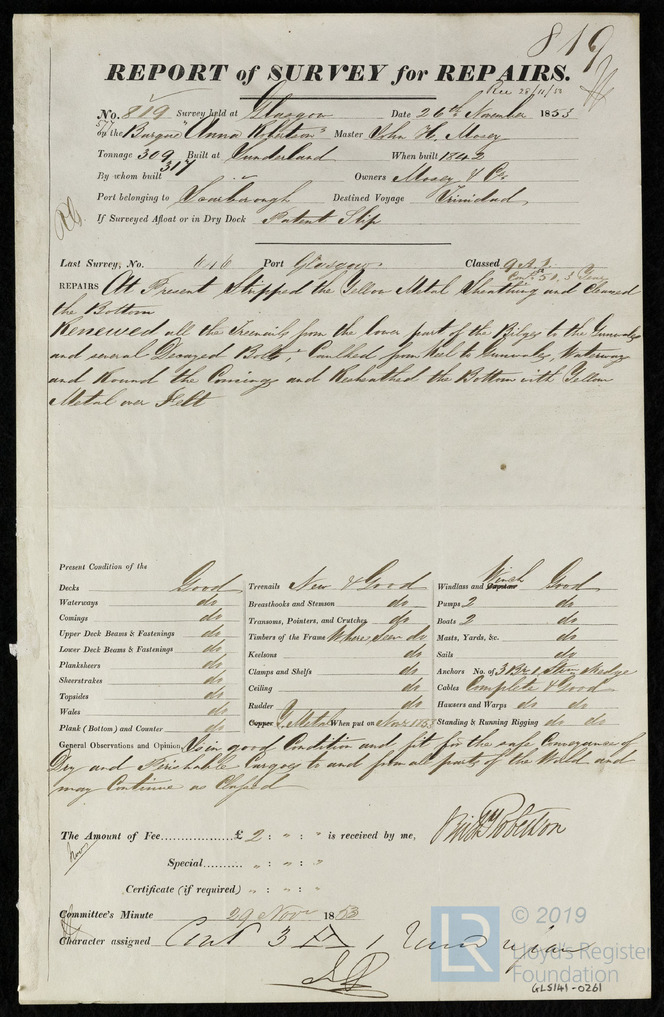 819
REPORT of SURVEY for REPAIRS.
Rec 28/11/53
No. 819 Survey held at Glasgow Date 26th November 1853
on the Barque "Anna Robertson" Master John H. Mosey
Tonnage 309 Built at Sunderland When built 1842
317
By whom built Owners Mosey & Co
Port belonging to Scarborough Destined Voyage Trinidad
If Surveyed Afloat or in Dry Dock Patent Slip
Last Survey, No. 616 Port Glasgow Classed 9 A 1
Cont. 50, 3 Years
REPAIRS At Present Stripped the Yellow Metal Sheathing and Cleaned
the Bottom
Renewed all the Treenails from the lower part of the Bilges to the Gunwales
and several Decayed Bolts, Caulked from Keel to Gunwales, Waterways
and Round the Comings and Resheathed the Bottom with Yellow
Metal over Felt
Present Condition of the
Decks Good Treenails New & Good Windlass and Capstan Winch Good
Waterways do Breasthooks and Stemson do Pumps 2 do
Comings do Transoms, Pointers, and Crutches do Boats 2 do
Upper Deck Beams & Fastenings do Timbers of the Frame Where Seen do Masts, Yards, &c. do
Lower Deck Beams & Fastenings do Keelsons do Sails do
Planksheers do Clamps and Shelfs do Anchors No. of 3 Br 1 Stm Kedge
Sheerstrakes do Ceiling do Cables Complete & Good
Topsides do Rudder do Hawsers and Warps do do
Wales do Copper Y. Metal When put on Novr 1853 Standing & Running Rigging do do
Plank (Bottom) and Counter do
General Observations and Opinion Is in good Condition and fit for the safe Conveyance of
Dry and Perishable Cargoes to and from all parts of the World and
may Continue as Classed
The Amount of Fee £ 2 : " : " is received by me, Robertson
Special " : " : "
Certificate (if required) " : " : "
Committee's Minute 29 Novr 1853
Character assigned Cont 3
LR
© 2019
Lloyd's Register
Foundation
GLS141-0261